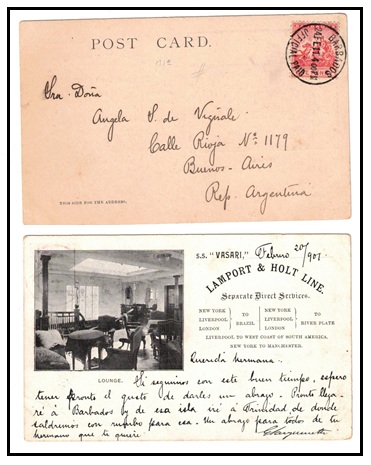 POST CARD.
BARBADOS
Sra. Doña
Angela S. de Vignale
Calle Rioja Nº 1179
Buenos-Aires
Rep. Argentina
THIS SIDE FOR THE ADDRESS.
S.S. "VASARI," Febrero 20/907
LAMPORT & HOLT LINE.
Separate Direct Services.
NEW YORK LIVERPOOL LONDON } TO BRAZIL NEW YORK LIVERPOOL LONDON } TO RIVER PLATE
LIVERPOOL TO WEST COAST OF SOUTH AMERICA.
NEW YORK TO MANCHESTER.
Querida hermana.
LOUNGE. Hi seguimos con este buen tiempo, espero
tener pronto el gusto de darles un abrazo. Pronto llega-
ré á Barbados y de esa isla iré á Trinidad de donde
saldremos con rumbo para esa. Un abrazo para todos de tu
hermano que te quiere